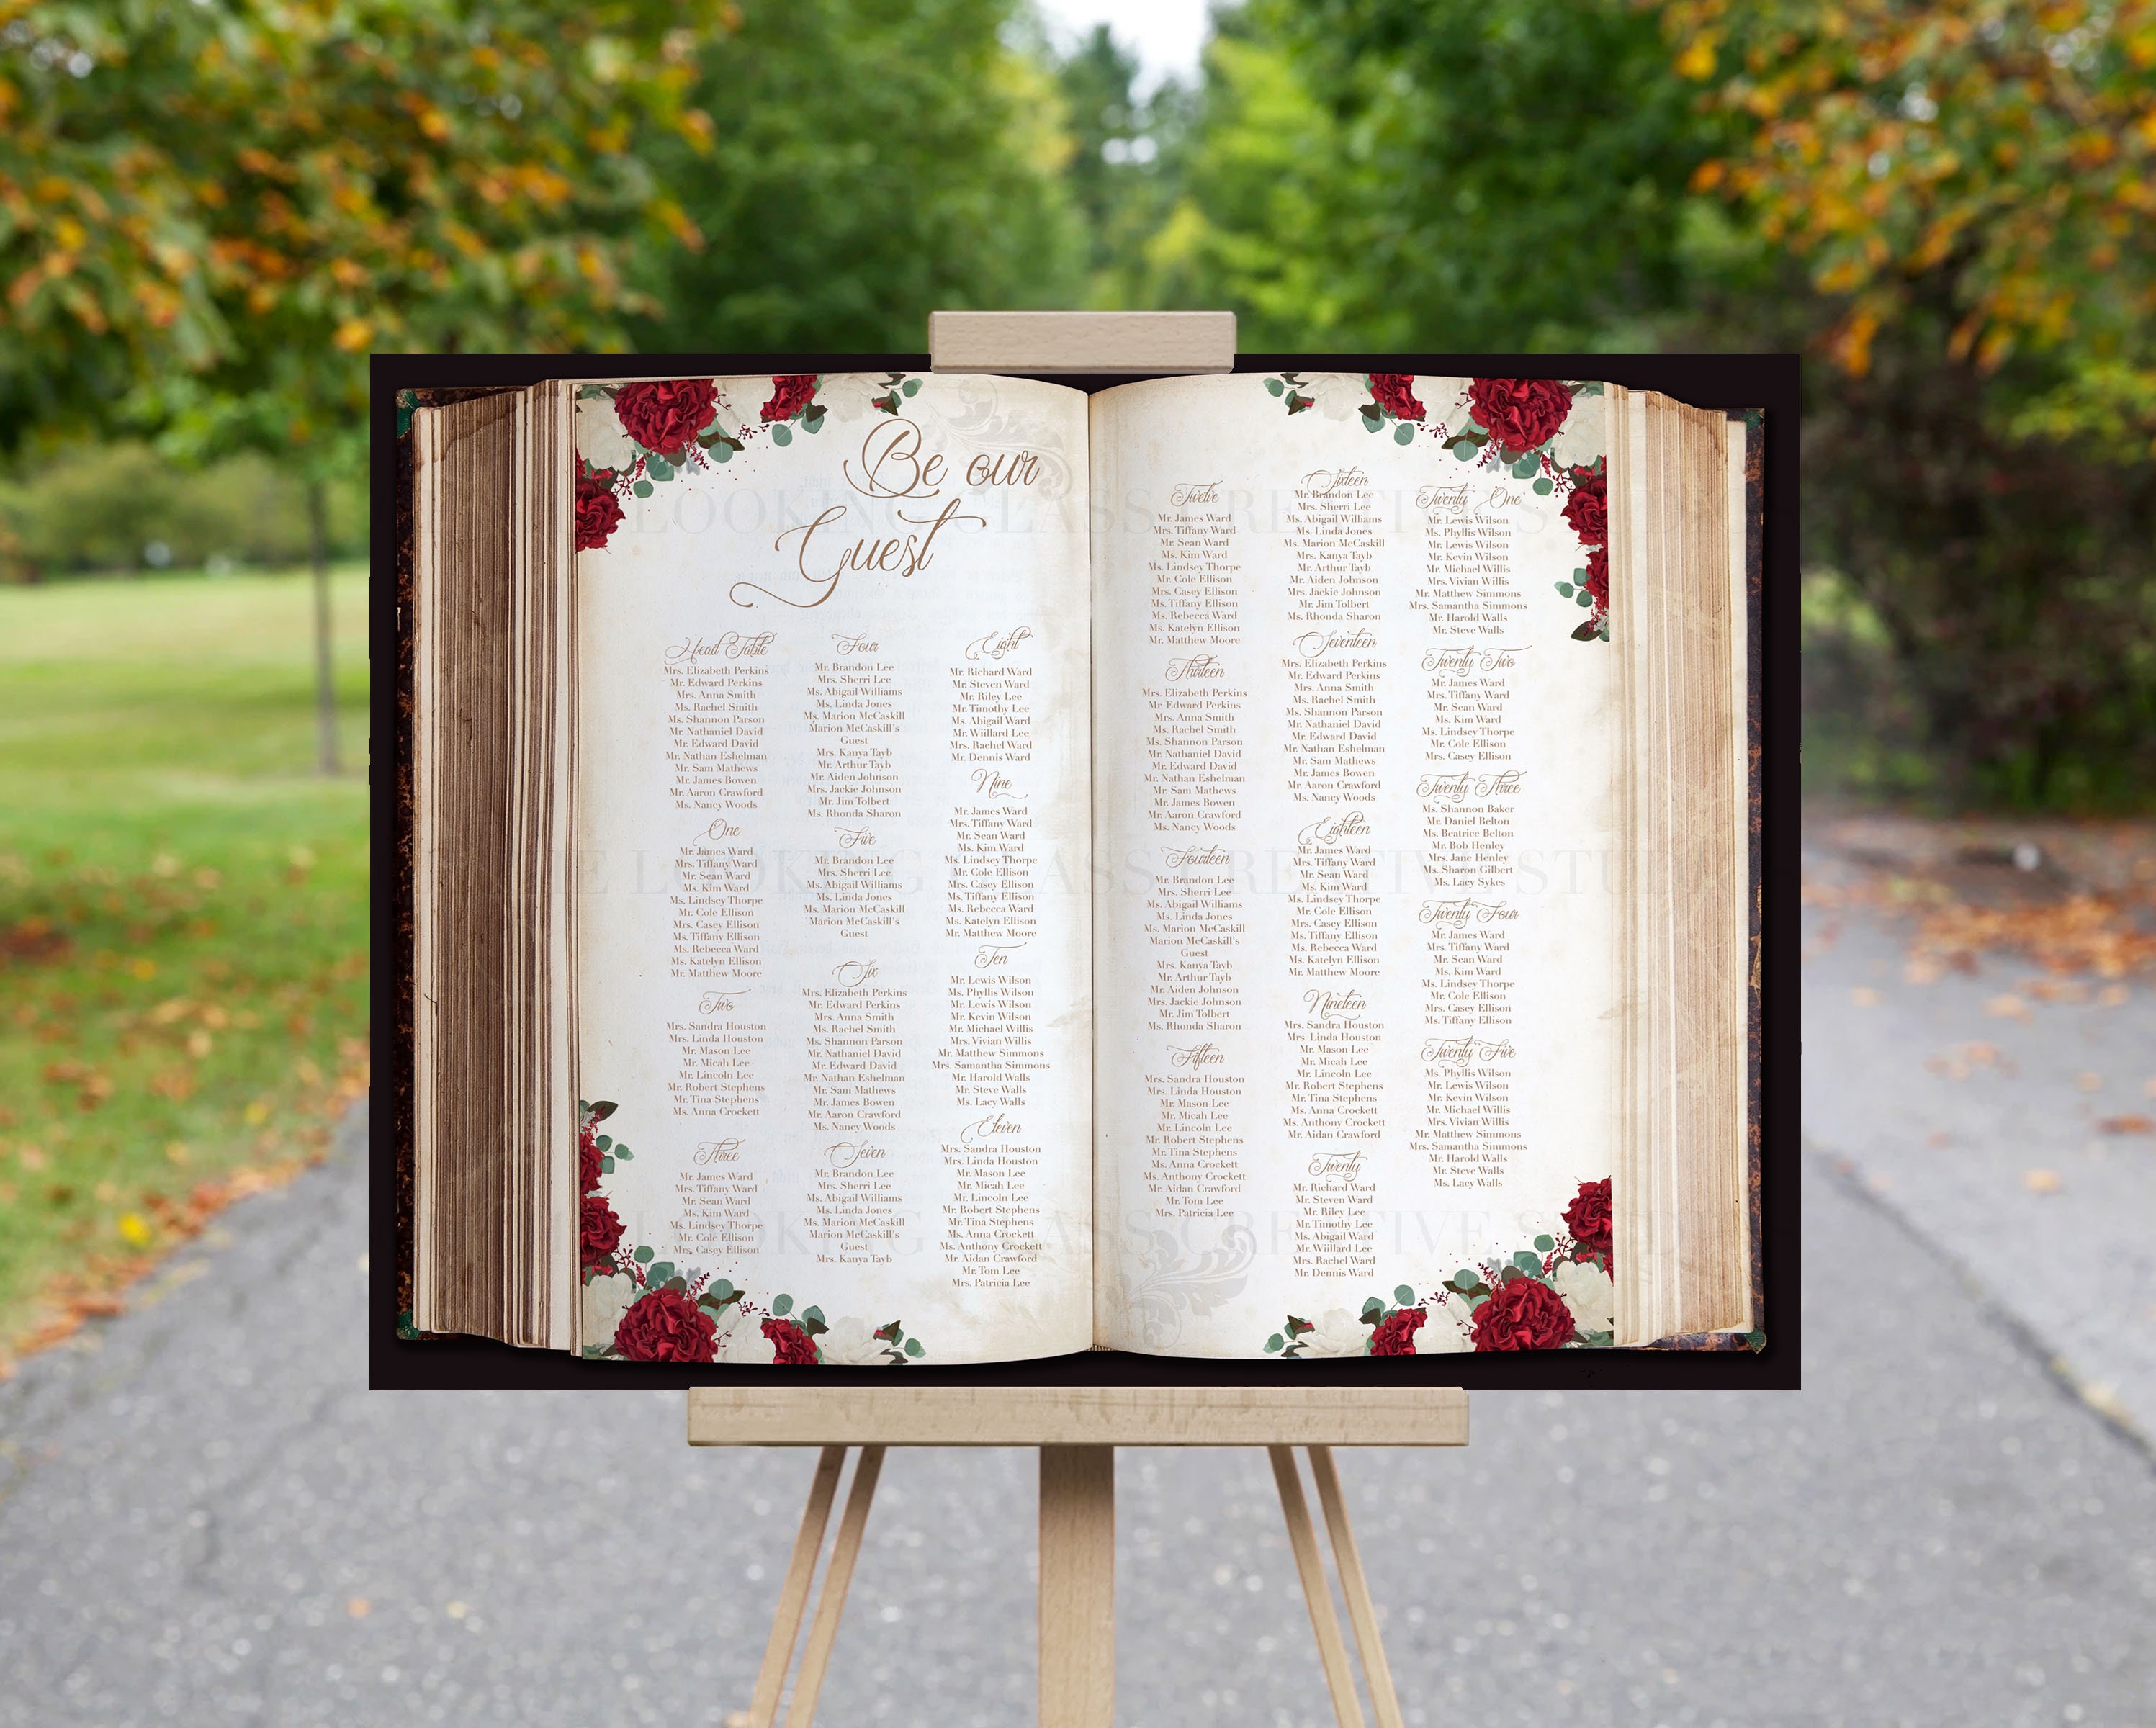 Be our
Guest
Head Table
Mrs. Elizabeth Perkins
Mr. Edward Perkins
Mrs. Anna Smith
Ms. Rachel Smith
Ms. Shannon Parson
Mr. Nathaniel David
Mr. Edward David
Mr. Nathan Eshelman
Mr. Sam Mathews
Mr. James Bowen
Mr. Aaron Crawford
Ms. Nancy Woods
One
Mr. James Ward
Mrs. Tiffany Ward
Mr. Sean Ward
Ms. Kim Ward
Ms. Lindsey Thorpe
Mr. Cole Ellison
Mrs. Casey Ellison
Ms. Tiffany Ellison
Ms. Rebecca Ward
Ms. Katelyn Ellison
Mr. Matthew Moore
Two
Mrs. Sandra Houston
Mrs. Linda Houston
Mr. Mason Lee
Mr. Micah Lee
Mr. Lincoln Lee
Mr. Robert Stephens
Mr. Tina Stephens
Ms. Anna Crockett
Three
Mr. James Ward
Mrs. Tiffany Ward
Mr. Sean Ward
Ms. Kim Ward
Ms. Lindsey Thorpe
Mr. Cole Ellison
Mrs. Casey Ellison
Four
Mr. Brandon Lee
Mrs. Sherri Lee
Ms. Abigail Williams
Ms. Linda Jones
Ms. Marion McCaskill
Marion McCaskill's
Guest
Mrs. Kanya Tayb
Mr. Arthur Tayb
Mr. Aiden Johnson
Mrs. Jackie Johnson
Mr. Jim Tolbert
Ms. Rhonda Sharon
Five
Mr. Brandon Lee
Mrs. Sherri Lee
Ms. Abigail Williams
Ms. Linda Jones
Ms. Marion McCaskill
Marion McCaskill's
Guest
Six
Mrs. Elizabeth Perkins
Mr. Edward Perkins
Mrs. Anna Smith
Ms. Rachel Smith
Ms. Shannon Parson
Mr. Nathaniel David
Mr. Edward David
Mr. Nathan Eshelman
Mr. Sam Mathews
Mr. James Bowen
Mr. Aaron Crawford
Ms. Nancy Woods
Seven
Mr. Brandon Lee
Mrs. Sherri Lee
Ms. Abigail Williams
Ms. Linda Jones
Ms. Marion McCaskill
Marion McCaskill's
Guest
Mrs. Kanya Tayb
Eight
Mr. Richard Ward
Mr. Steven Ward
Mr. Riley Lee
Mr. Timothy Lee
Ms. Abigail Ward
Mr. Wiillard Lee
Mrs. Rachel Ward
Mr. Dennis Ward
Nine
Mr. James Ward
Mrs. Tiffany Ward
Mr. Sean Ward
Ms. Kim Ward
Ms. Lindsey Thorpe
Mr. Cole Ellison
Mrs. Casey Ellison
Ms. Tiffany Ellison
Ms. Rebecca Ward
Ms. Katelyn Ellison
Mr. Matthew Moore
Ten
Mr. Lewis Wilson
Ms. Phyllis Wilson
Mr. Lewis Wilson
Mr. Kevin Wilson
Mr. Michael Willis
Mrs. Vivian Willis
Mr. Matthew Simmons
Mrs. Samantha Simmons
Mr. Harold Walls
Mr. Steve Walls
Ms. Lacy Walls
Eleven
Mrs. Sandra Houston
Mrs. Linda Houston
Mr. Mason Lee
Mr. Micah Lee
Mr. Lincoln Lee
Mr. Robert Stephens
Mr. Tina Stephens
Ms. Anna Crockett
Ms. Anthony Crockett
Mr. Aidan Crawford
Mr. Tom Lee
Mrs. Patricia Lee
Twelve
Mr. James Ward
Mrs. Tiffany Ward
Mr. Sean Ward
Ms. Kim Ward
Ms. Lindsey Thorpe
Mr. Cole Ellison
Mrs. Casey Ellison
Ms. Tiffany Ellison
Ms. Rebecca Ward
Ms. Katelyn Ellison
Mr. Matthew Moore
Thirteen
Mrs. Elizabeth Perkins
Mr. Edward Perkins
Mrs. Anna Smith
Ms. Rachel Smith
Ms. Shannon Parson
Mr. Nathaniel David
Mr. Edward David
Mr. Nathan Eshelman
Mr. Sam Mathews
Mr. James Bowen
Mr. Aaron Crawford
Ms. Nancy Woods
Fourteen
Mr. Brandon Lee
Mrs. Sherri Lee
Ms. Abigail Williams
Ms. Linda Jones
Ms. Marion McCaskill
Marion McCaskill's
Guest
Mrs. Kanya Tayb
Mr. Arthur Tayb
Mr. Aiden Johnson
Mrs. Jackie Johnson
Mr. Jim Tolbert
Ms. Rhonda Sharon
Fifteen
Mrs. Sandra Houston
Mrs. Linda Houston
Mr. Mason Lee
Mr. Micah Lee
Mr. Lincoln Lee
Mr. Robert Stephens
Mr. Tina Stephens
Ms. Anna Crockett
Ms. Anthony Crockett
Mr. Aidan Crawford
Mr. Tom Lee
Mrs. Patricia Lee
Sixteen
Mr. Brandon Lee
Mrs. Sherri Lee
Ms. Abigail Williams
Ms. Linda Jones
Ms. Marion McCaskill
Mrs. Kanya Tayb
Mr. Arthur Tayb
Mr. Aiden Johnson
Mrs. Jackie Johnson
Mr. Jim Tolbert
Ms. Rhonda Sharon
Seventeen
Mrs. Elizabeth Perkins
Mr. Edward Perkins
Mrs. Anna Smith
Ms. Rachel Smith
Ms. Shannon Parson
Mr. Nathaniel David
Mr. Edward David
Mr. Nathan Eshelman
Mr. Sam Mathews
Mr. James Bowen
Mr. Aaron Crawford
Ms. Nancy Woods
Eighteen
Mr. James Ward
Mrs. Tiffany Ward
Mr. Sean Ward
Ms. Kim Ward
Ms. Lindsey Thorpe
Mr. Cole Ellison
Mrs. Casey Ellison
Ms. Tiffany Ellison
Ms. Rebecca Ward
Ms. Katelyn Ellison
Mr. Matthew Moore
Nineteen
Mrs. Sandra Houston
Mrs. Linda Houston
Mr. Mason Lee
Mr. Micah Lee
Mr. Lincoln Lee
Mr. Robert Stephens
Mr. Tina Stephens
Ms. Anna Crockett
Ms. Anthony Crockett
Mr. Aidan Crawford
Twenty
Mr. Richard Ward
Mr. Steven Ward
Mr. Riley Lee
Mr. Timothy Lee
Ms. Abigail Ward
Mr. Wiillard Lee
Mrs. Rachel Ward
Mr. Dennis Ward
Twenty One
Mr. Lewis Wilson
Ms. Phyllis Wilson
Mr. Lewis Wilson
Mr. Kevin Wilson
Mr. Michael Willis
Mrs. Vivian Willis
Mr. Matthew Simmons
Mrs. Samantha Simmons
Mr. Harold Walls
Mr. Steve Walls
Twenty Two
Mr. James Ward
Mrs. Tiffany Ward
Mr. Sean Ward
Ms. Kim Ward
Ms. Lindsey Thorpe
Mr. Cole Ellison
Mrs. Casey Ellison
Twenty Three
Ms. Shannon Baker
Mr. Daniel Belton
Ms. Beatrice Belton
Mr. Bob Henley
Mrs. Jane Henley
Ms. Sharon Gilbert
Ms. Lacy Sykes
Twenty Four
Mr. James Ward
Mrs. Tiffany Ward
Mr. Sean Ward
Ms. Kim Ward
Ms. Lindsey Thorpe
Mr. Cole Ellison
Mrs. Casey Ellison
Ms. Tiffany Ellison
Twenty Five
Ms. Phyllis Wilson
Mr. Lewis Wilson
Mr. Kevin Wilson
Mr. Michael Willis
Mrs. Vivian Willis
Mr. Matthew Simmons
Mrs. Samantha Simmons
Mr. Harold Walls
Mr. Steve Walls
Ms. Lacy Walls